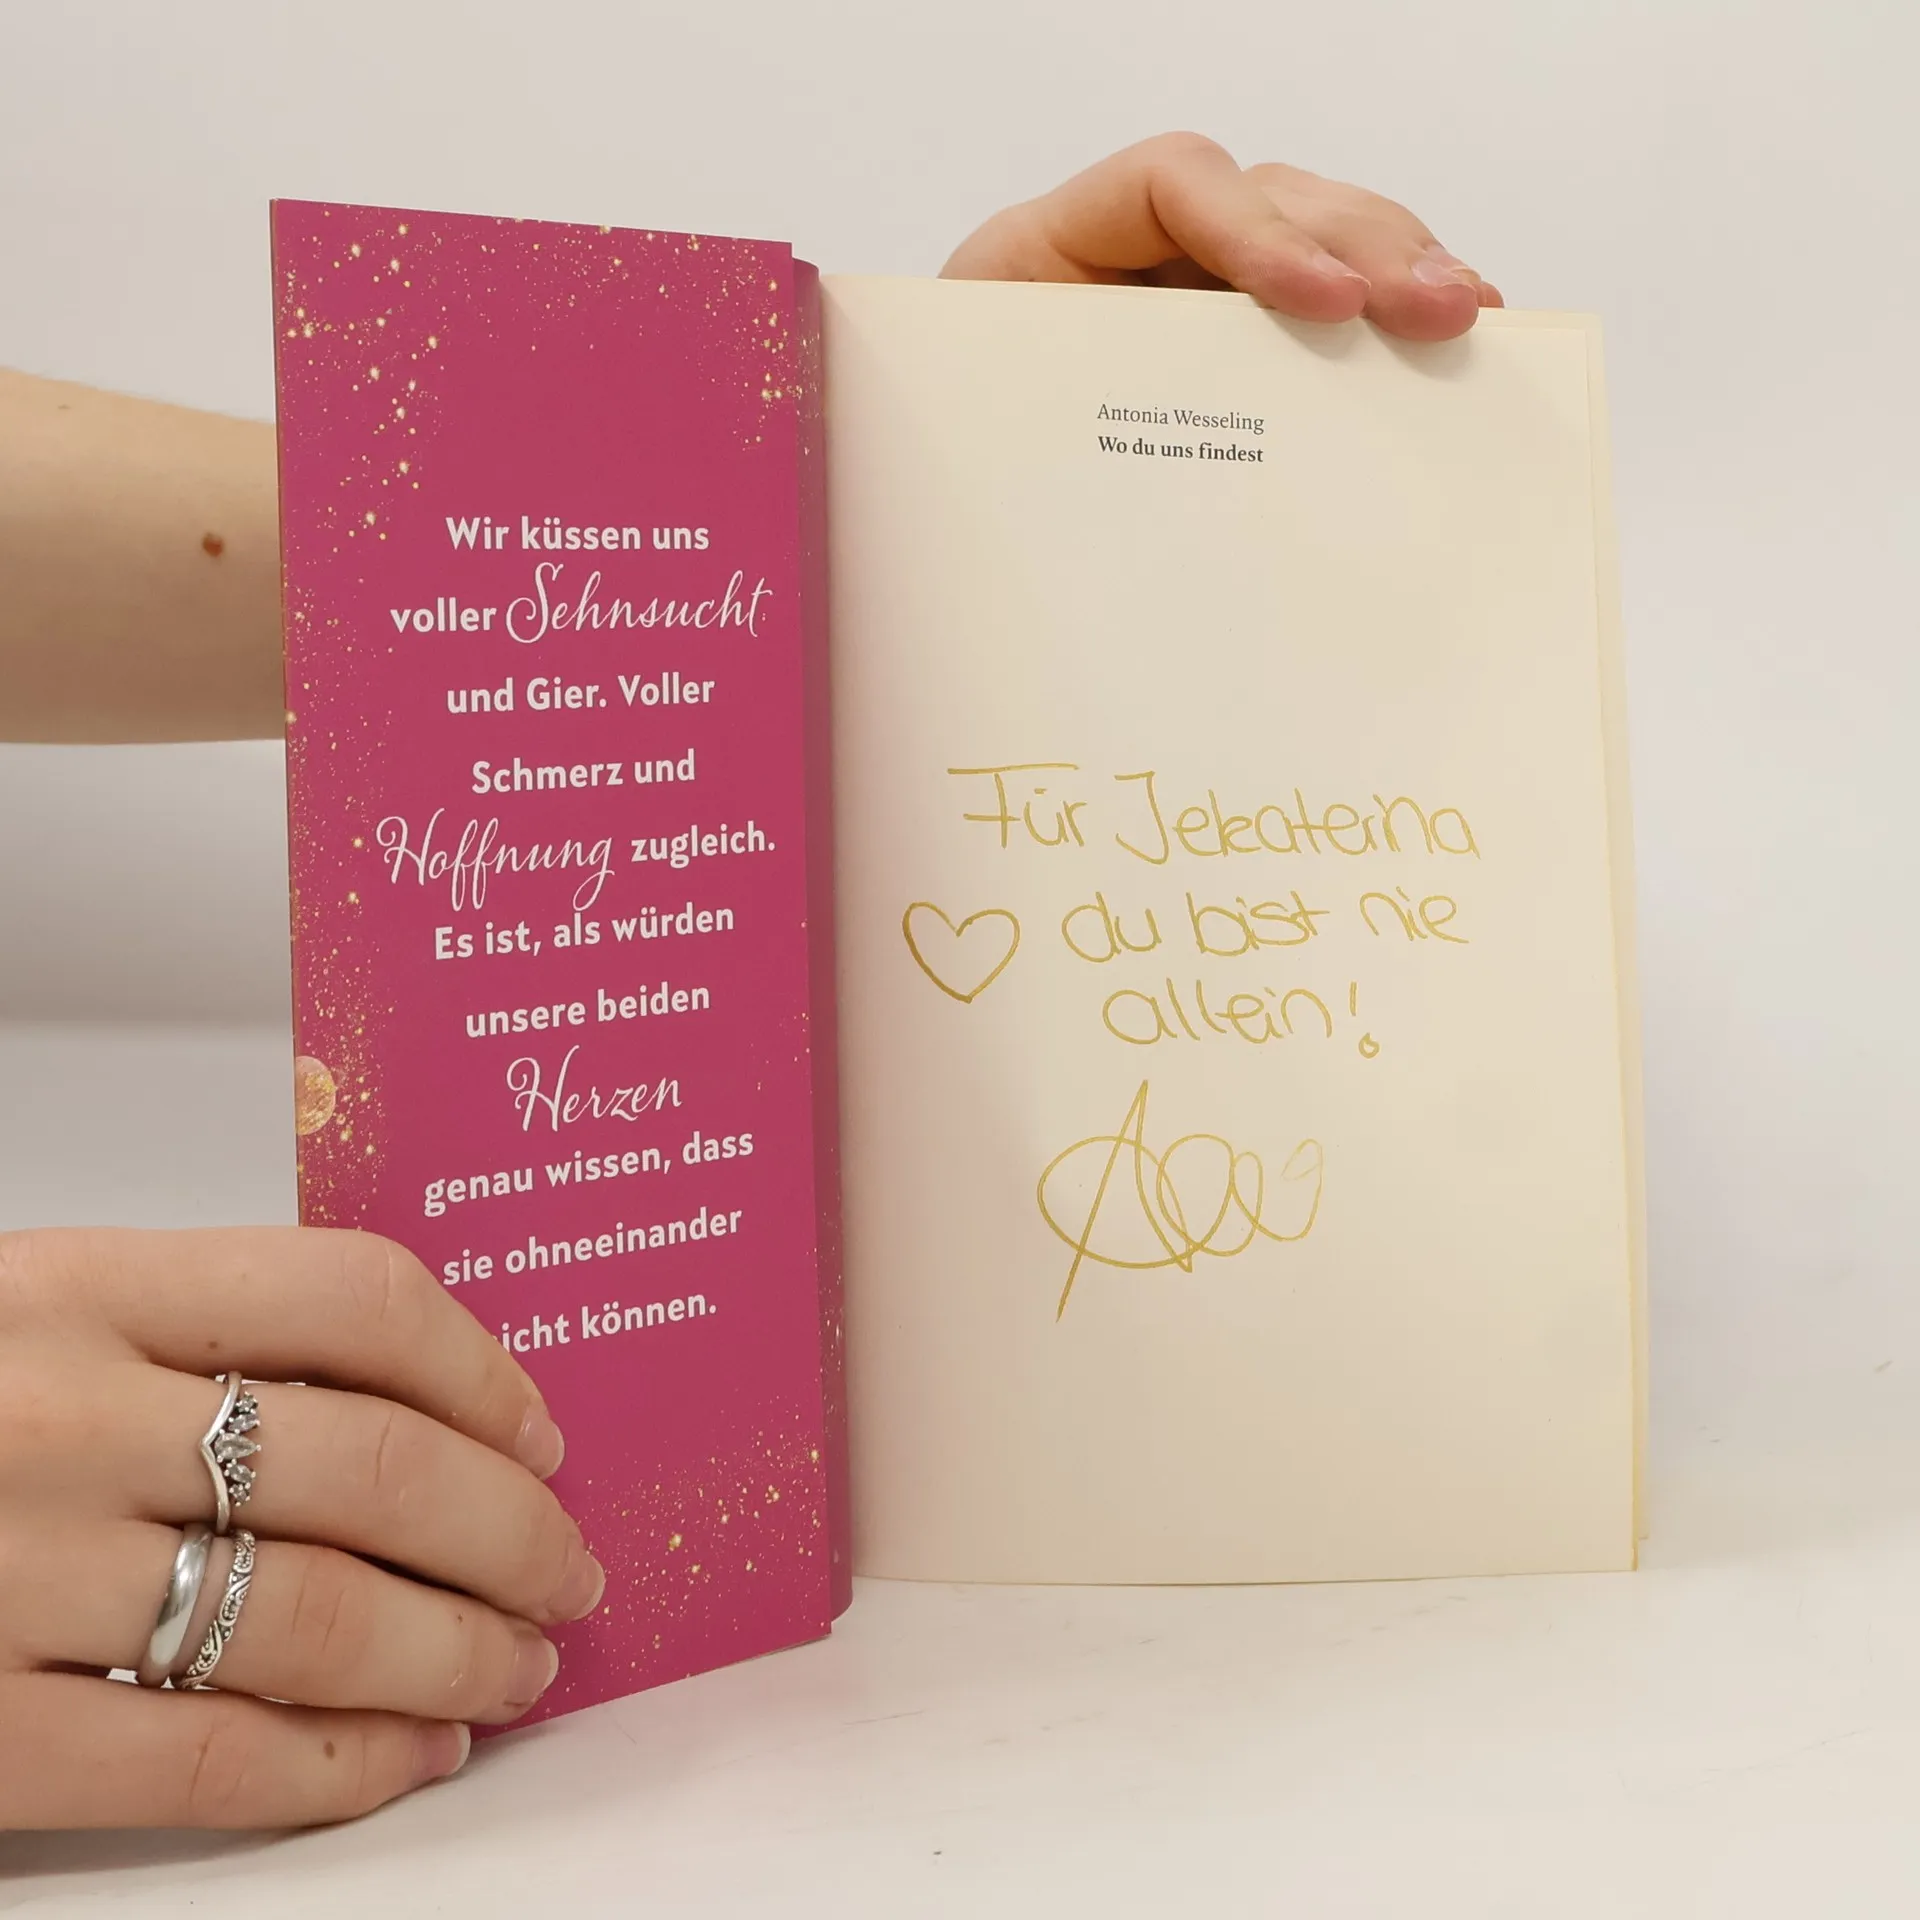 Wir küssen uns
voller Sehnsucht
und Gier. Voller
Schmerz und
Hoffnung zugleich.
Es ist, als würden
unsere beiden
Herzen
genau wissen, dass
sie ohneeinander
icht können.
Antonia Wesseling
Wo du uns findest
Für Jekaterina
du bist nie
allein!